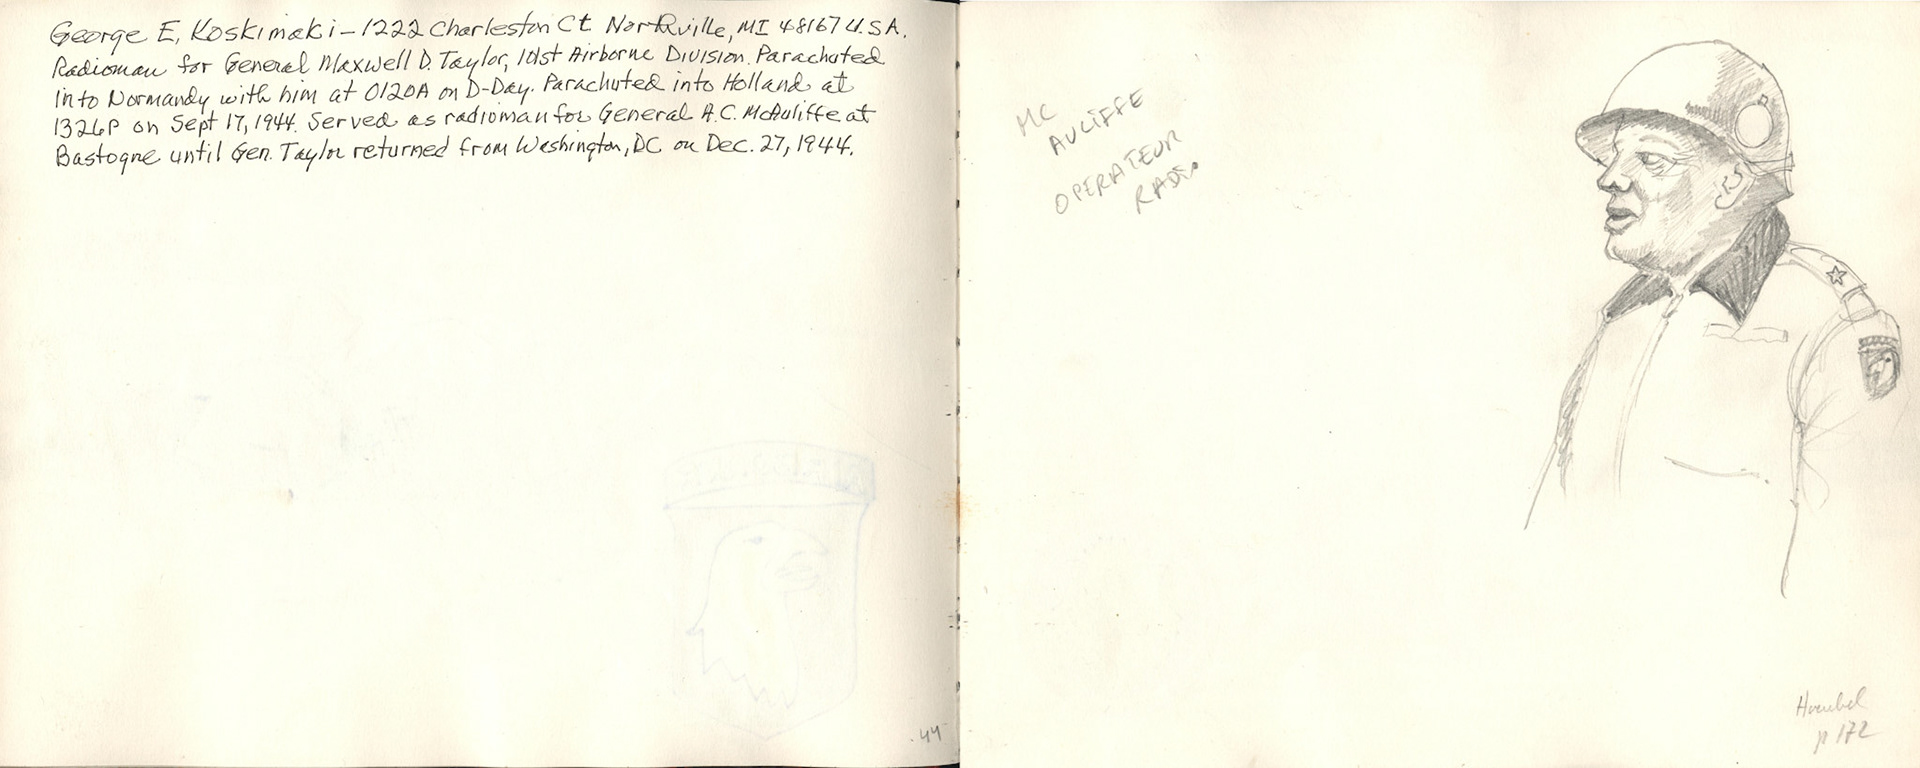 George E. Koskimaki - 1222 Charleston Ct Northville, MI 48167 U.S.A.
Radioman for General Maxwell D. Taylor, 101st Airborne Division. Parachuted
into Normandy with him at 0120A on D-Day. Parachuted into Holland at
1326P on Sept 17, 1944. Served as radioman for General A.C. McAuliffe at
Bastogne until Gen. Taylor returned from Washington, DC on Dec. 27, 1944.
44
MC
AULIFFE
OPERATEUR
RADIO
p 172